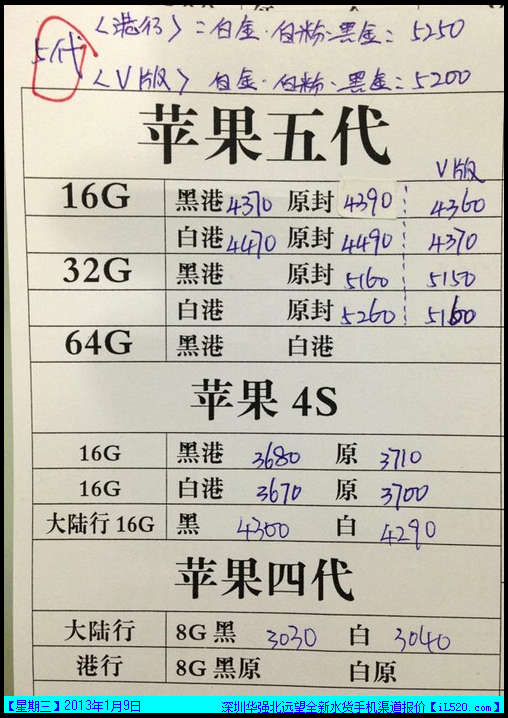 5代 <港行>:白金·白粉·黑金:5250
<V版> 白金·白粉·黑金:5200
苹果五代
V版
16G 黑港 4370 原封 4390 4360
白港 4470 原封 4490 4370
32G 黑港 原封 5160 5150
白港 原封 5260 5160
64G 黑港 白港
苹果 4S
16G 黑港 3680 原 3710
16G 白港 3670 原 3700
大陆行 16G 黑 4300 白 4290
苹果四代
大陆行 8G 黑 3030 白 3040
港行 8G 黑原 白原
【星期三】2013年1月9日 深圳华强北远望全新水货手机渠道报价【iL520.com】